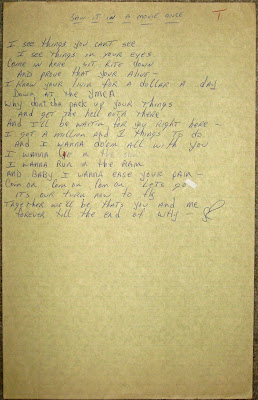 SAW IT IN A MOVIE ONCE
T
I SEE THINGS YOU CAN'T SEE
I SEE THINGS IN YOUR EYES
COME IN HERE SIT RITE DOWN
AND PROVE THAT YOUR ALIVE -
I KNOW YOUR LIVIN FOR A DOLLAR A DAY
DOWN AT THE YMCA
WHY DON'T CHA PACK UP YOUR THINGS
AND GET THE HELL OUTA THERE
AND I'LL BE WAITIN FOR YOU RIGHT HERE -
I GET A MILLION AND 1 THINGS TO DO
AND I WANNA DO EM ALL WITH YOU
I WANNA IN THE
I WANNA RUN IN THE RAIN
AND BABY I WANNA EASE YOUR PAIN -
COM ON COM ON COM ON LETS GO
ITS OUR TURN NOW TO FLY
TOGETHER WE'LL BE THATS YOU AND ME
FOREVER TILL THE END OF WHY -